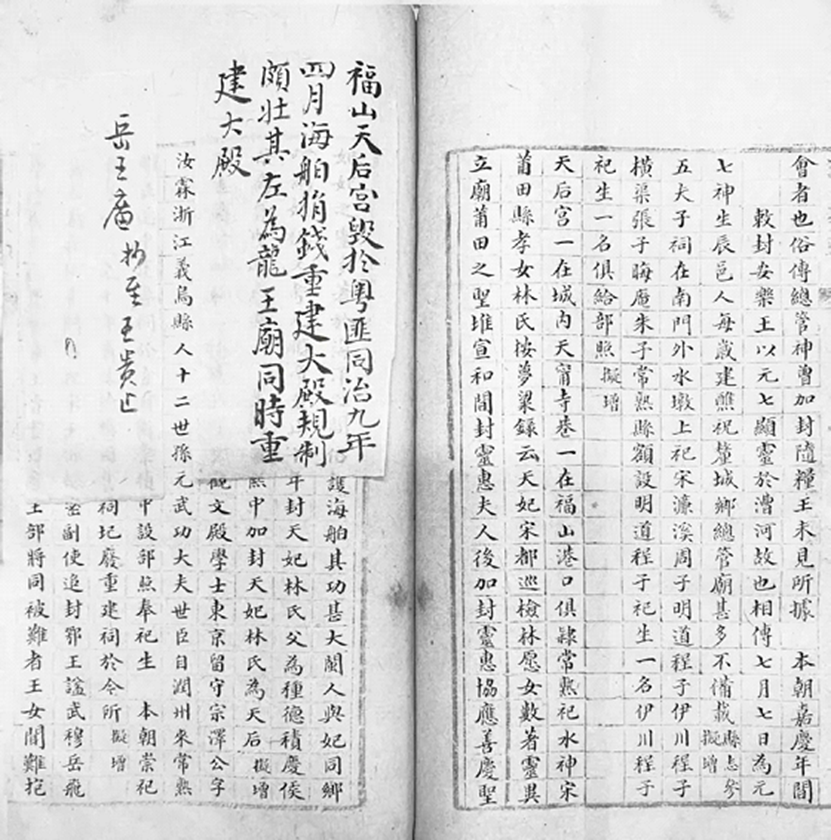 會者也俗傳總管神曽加封隨糧王未見所據　本朝嘉慶年間
敕封安樂王以元七顯靈於漕河故也相傳七月七日為元
七神生辰邑人每歲建醮祝釐城鄉總管廟甚多不備載縣志參擬增
五夫子祠在南門外水墩上祀宋濂溪周子明道程子伊川程子
橫渠張子晦庵朱子常熟縣額設明道程子祀生一名伊川程子
祀生一名俱給部照擬增
天后宮一在城内天甯寺巷一在福山港口俱隷常熟祀水神宋
莆田縣孝女林氏按夢粱録云天妃宋都巡檢林愿女數著靈異
立廟莆田之聖堆宣和間封靈惠夫人後加封靈惠協應善慶聖
福山天后宮毀於粵匪同治九年
四月海舶捐錢重建大殿規制
頗壯其左為龍王廟同時重
建大殿
岳王廟抄至王貴止
護海舶其功甚大閩人與妃同鄉
年封天妃林氏父為種德積慶侯
熙中加封天妃林氏為天后擬增
觀文殿學士東京留守宗澤公字
汝霖浙江義烏縣人十二世孫元武功大夫世臣自潤州來常熟
中設部照奉祀生　本朝崇祀
祠圮廢重建祠於今所擬增
密副使追封鄂王諡武穆岳飛
王部將同被難者王女聞難抱